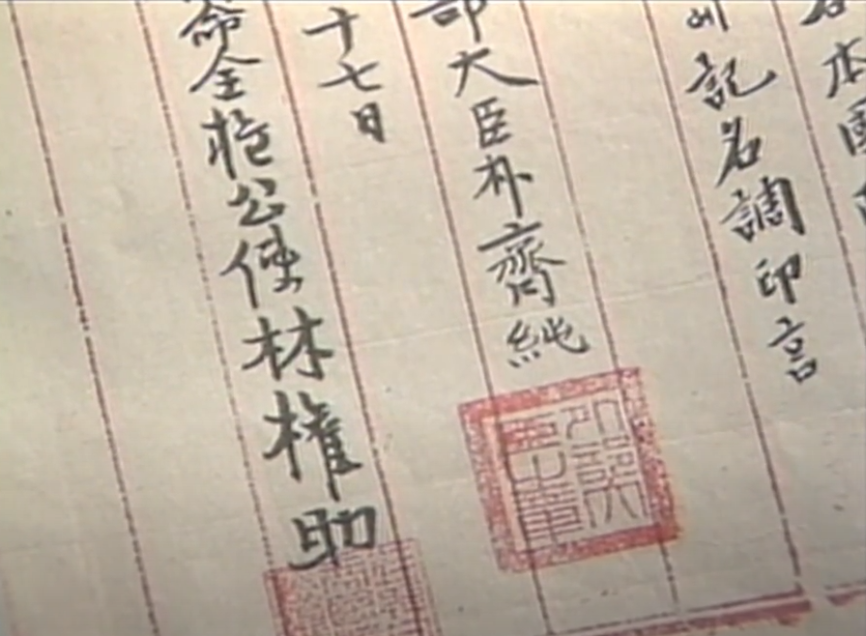 本國
에記名調印홈
部大臣朴齊純
外部大
臣之章
十七日
命全權公使林權助